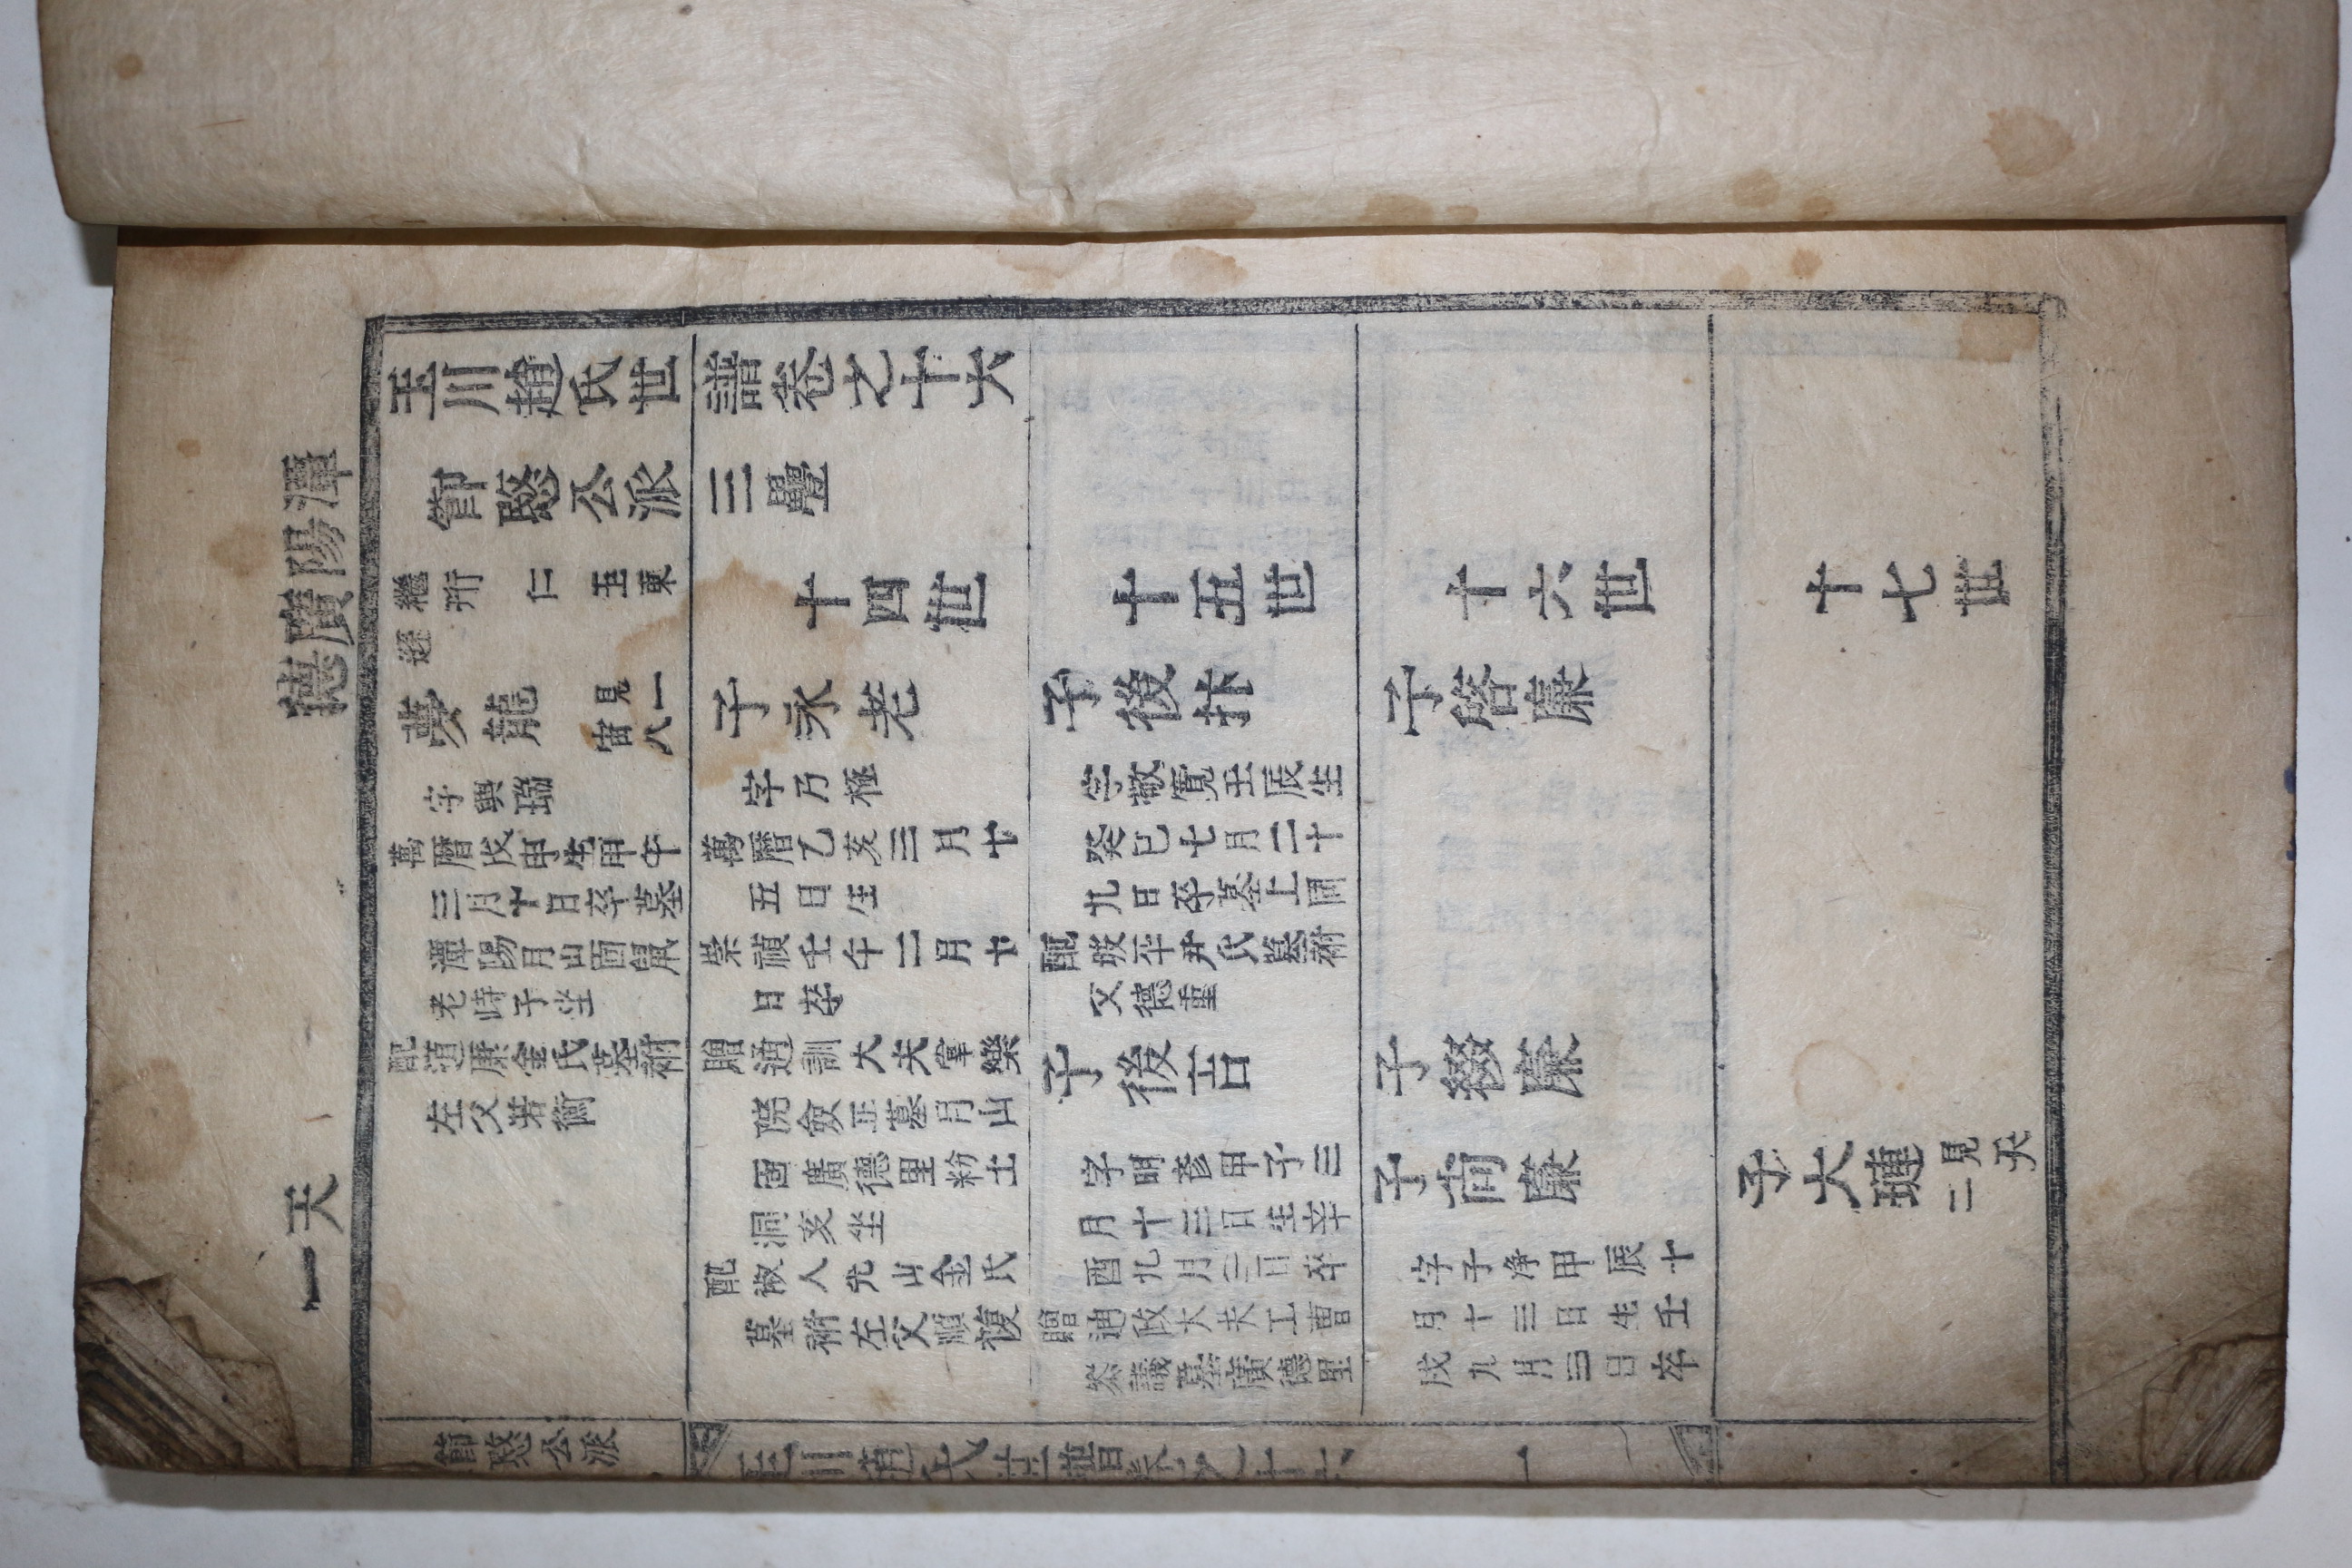 潭陽廣德
天一
玉川趙氏世譜卷之十六
節愍公派三疊
繼珩 仁 玉東
遜
十四世
十五世
十六世
十七世
夢龍 見一宙八
字興瑞
萬曆戊申生甲午
三月十日卒墓
潭陽月山面鼠
老峙子坐
配道康金氏墓祔
左父若衡
子永老
字乃極
萬曆乙亥三月十
五日生
崇禎壬午二月十
日卒
贈通訓大夫掌樂
院僉正墓月山
面廣德里粉土
洞亥坐
配淑人光山金氏
墓祔左父順馥
子後抃
字敬寬壬辰生
癸巳七月二十
九日卒墓上同
配坡平尹氏墓祔
父德重
子後吉
字明彥甲子三
月十三日生辛
酉九月三日卒
贈通政大夫工曹
參議墓廣德里
子啓廉
子綴廉
子尚廉
字子淨甲辰十
月十三日生壬
戌九月三日卒
子大璉 見天二
節愍公派
玉川趙氏世譜卷之十六
一